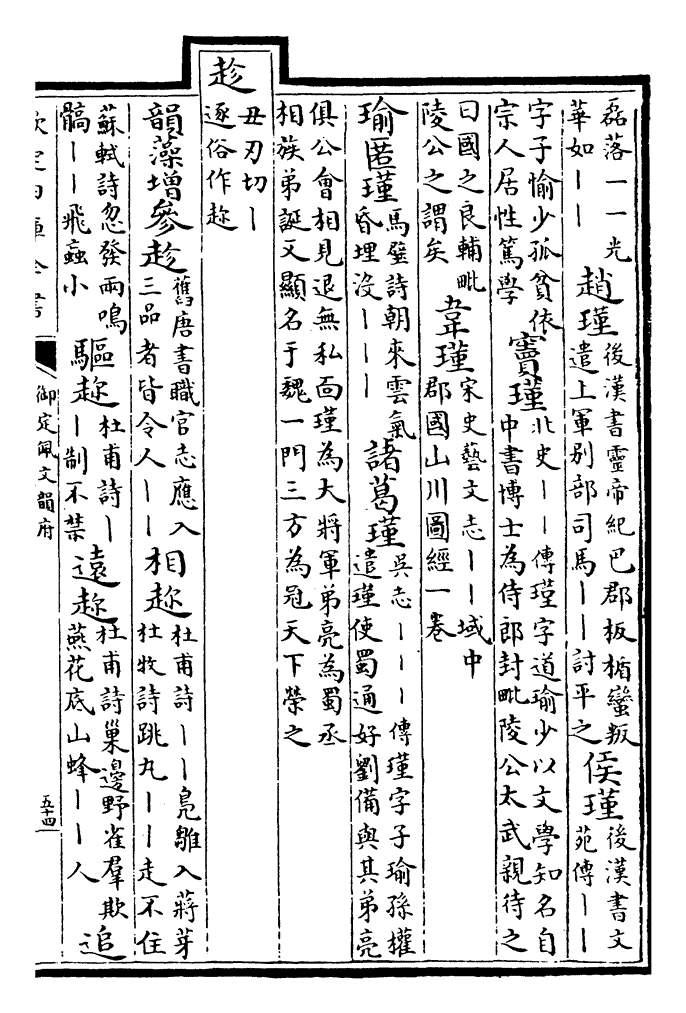 磊落一一光
華如丨丨
趙瑾
後漢書靈帝紀巴郡板楯蠻叛
遣上軍別部司馬丨丨討平之
侯瑾
後漢書文
苑傳丨丨
字子愉少孤貧依
宗人居性篤學
竇瑾
北史丨丨傳瑾字道瑜少以文學知名自
中書博士為侍郎封毗陵公太武親待之
曰國之良輔毗
陵公之謂矣
韋瑾
宋史藝文志丨丨域中
郡國山川圖經一卷
瑜匿瑾
馬璧詩朝來雲氣
昏埋沒丨丨丨
諸葛瑾
吳志丨丨丨傳瑾字子瑜孫權
遣瑾使蜀通好劉備與其弟亮
俱公會相見退無私面瑾為大將軍弟亮為蜀丞
相族弟誕又顯名于魏一門三方為冠天下榮之
趁
丑刃切丨
逐俗作趂
韻藻增參趁
舊唐書職官志應入
三品者皆令人丨丨
相趂
杜甫詩丨丨鳧雛入蔣芽
杜牧詩跳丸丨丨走不住
蘇軾詩忽發兩鳴
髇丨丨飛䖟小
驅趂
杜甫詩丨
丨制不禁
遠趂
杜甫詩巢邊野雀羣欺
燕花底山蜂丨丨人
追
欽定四庫全書
御定佩文韻府
五十四